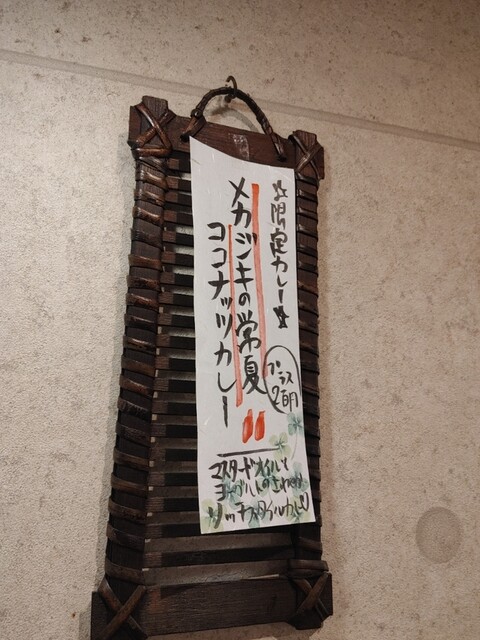 ☆限定カレー☆
メカジキの常夏
ココナッツカレー!!
プラス
200円
マスタードオイルと
ヨーグルトのさわやか
リッチスタイルカレー